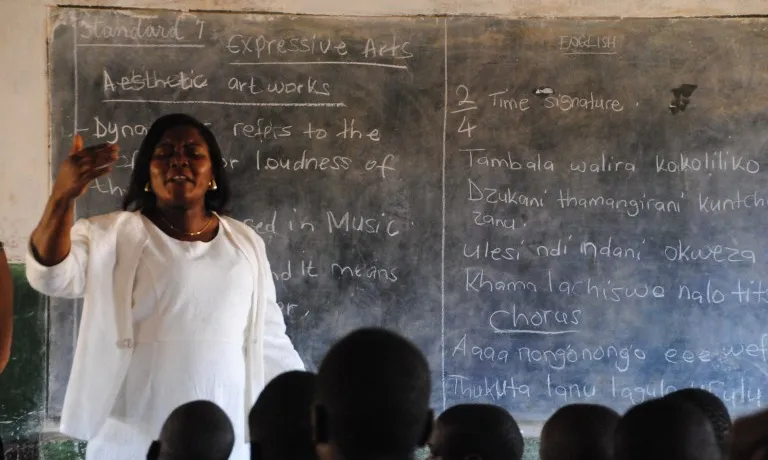 Standard 7
Expressive Arts
Aesthetic art works
Dyna refers to the
or loudness of
th
ed in Music
nd it means
or,
ENGLISH
2/4 Time signature.
Tambala walira kokoliliko
Dzukani thamangirani kuntch
zanu.
ulesi ndi indani okweza
Khama lachiswe nalo tit
Chorus
Aaaa nongonongo eee wef
Thukuta lanu